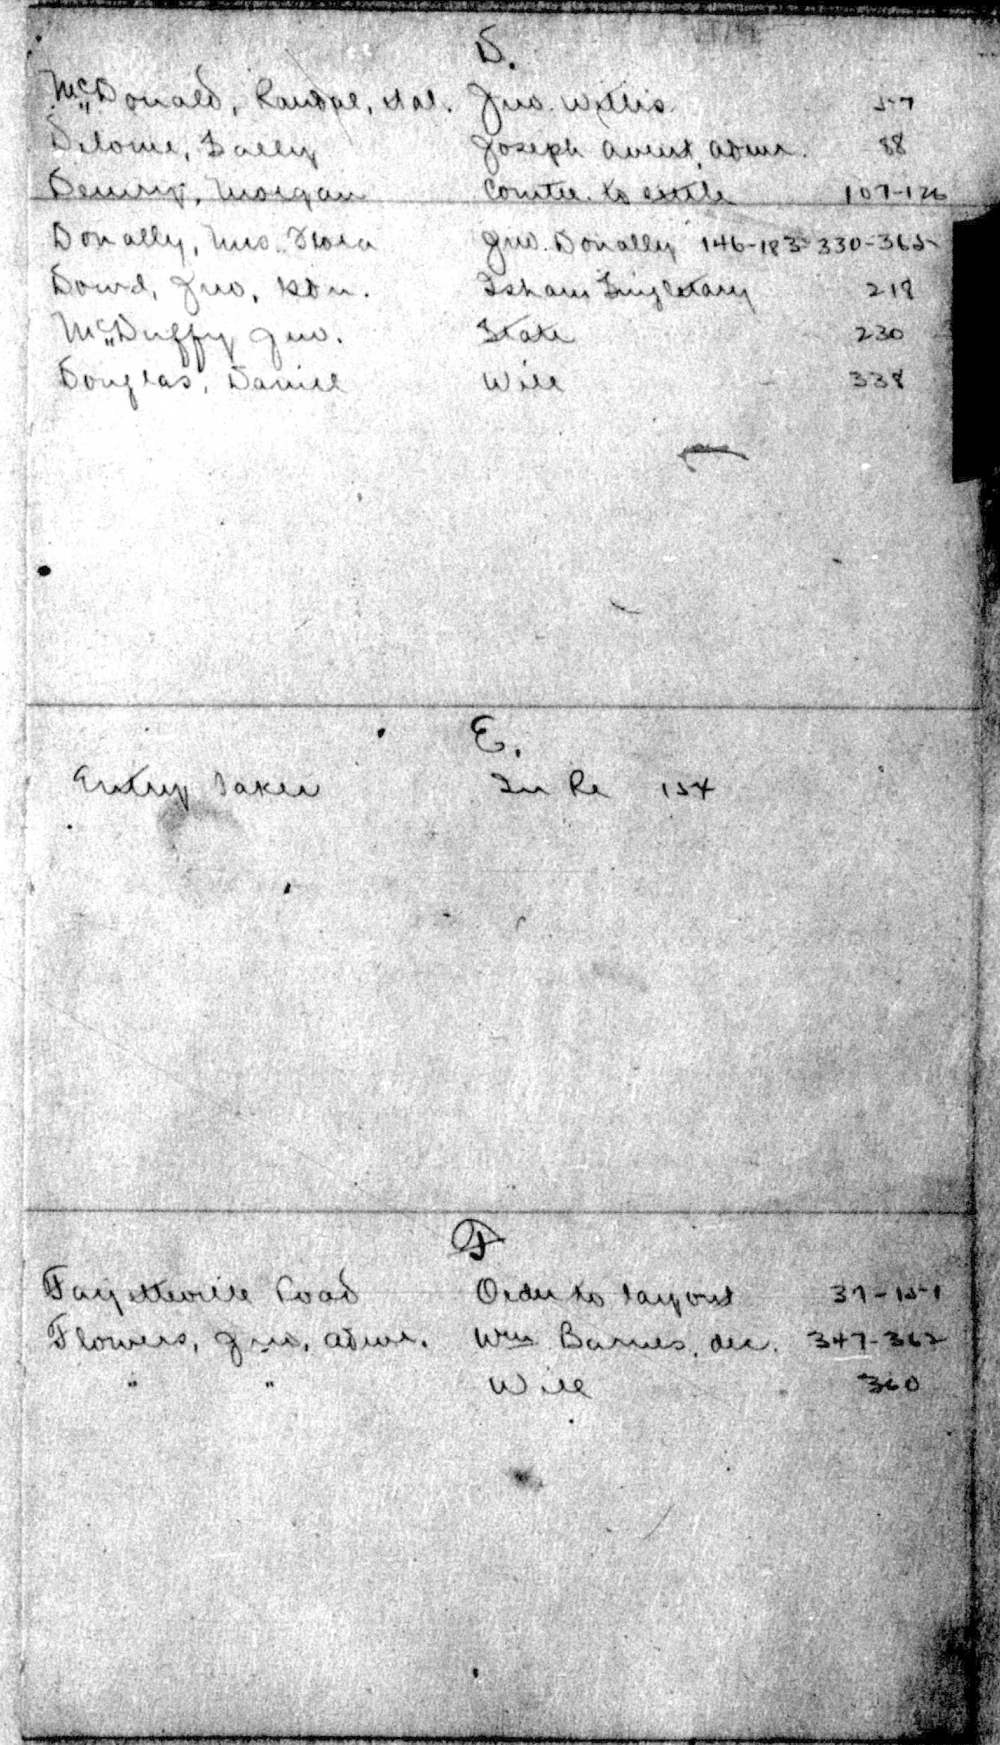 D.
McDonald, Randal, et al. Jno. Willis 57
Delome, Sally Joseph Avent, admr. 88
Deming, Morgan Comtee. to settle 107-126
Donally, Mrs. Flora Jno. Donally 146-183-330-365
Dowd, Jno, Isham Singletary 218
McDuffy Jno. State 230
Douglas, Daniel Will 338
E.
Entry Taker In Re 154
F
Fayetteville Road Order to layout 37-151
Flowers, Jno, admr. Wm Barnes, dec. 347-362
" " Will 360